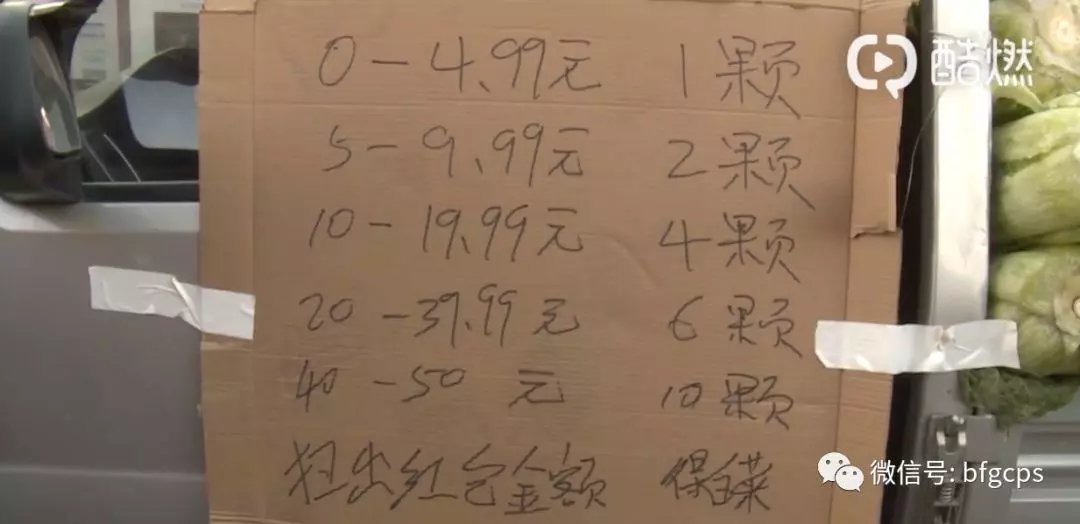 酷燃
0-4.99元 1颗
5-9.99元 2颗
10-19.99元 4颗
20-39.99元 6颗
40-50元 10颗
扫出红包金额 白菜
微信号: bfgcps